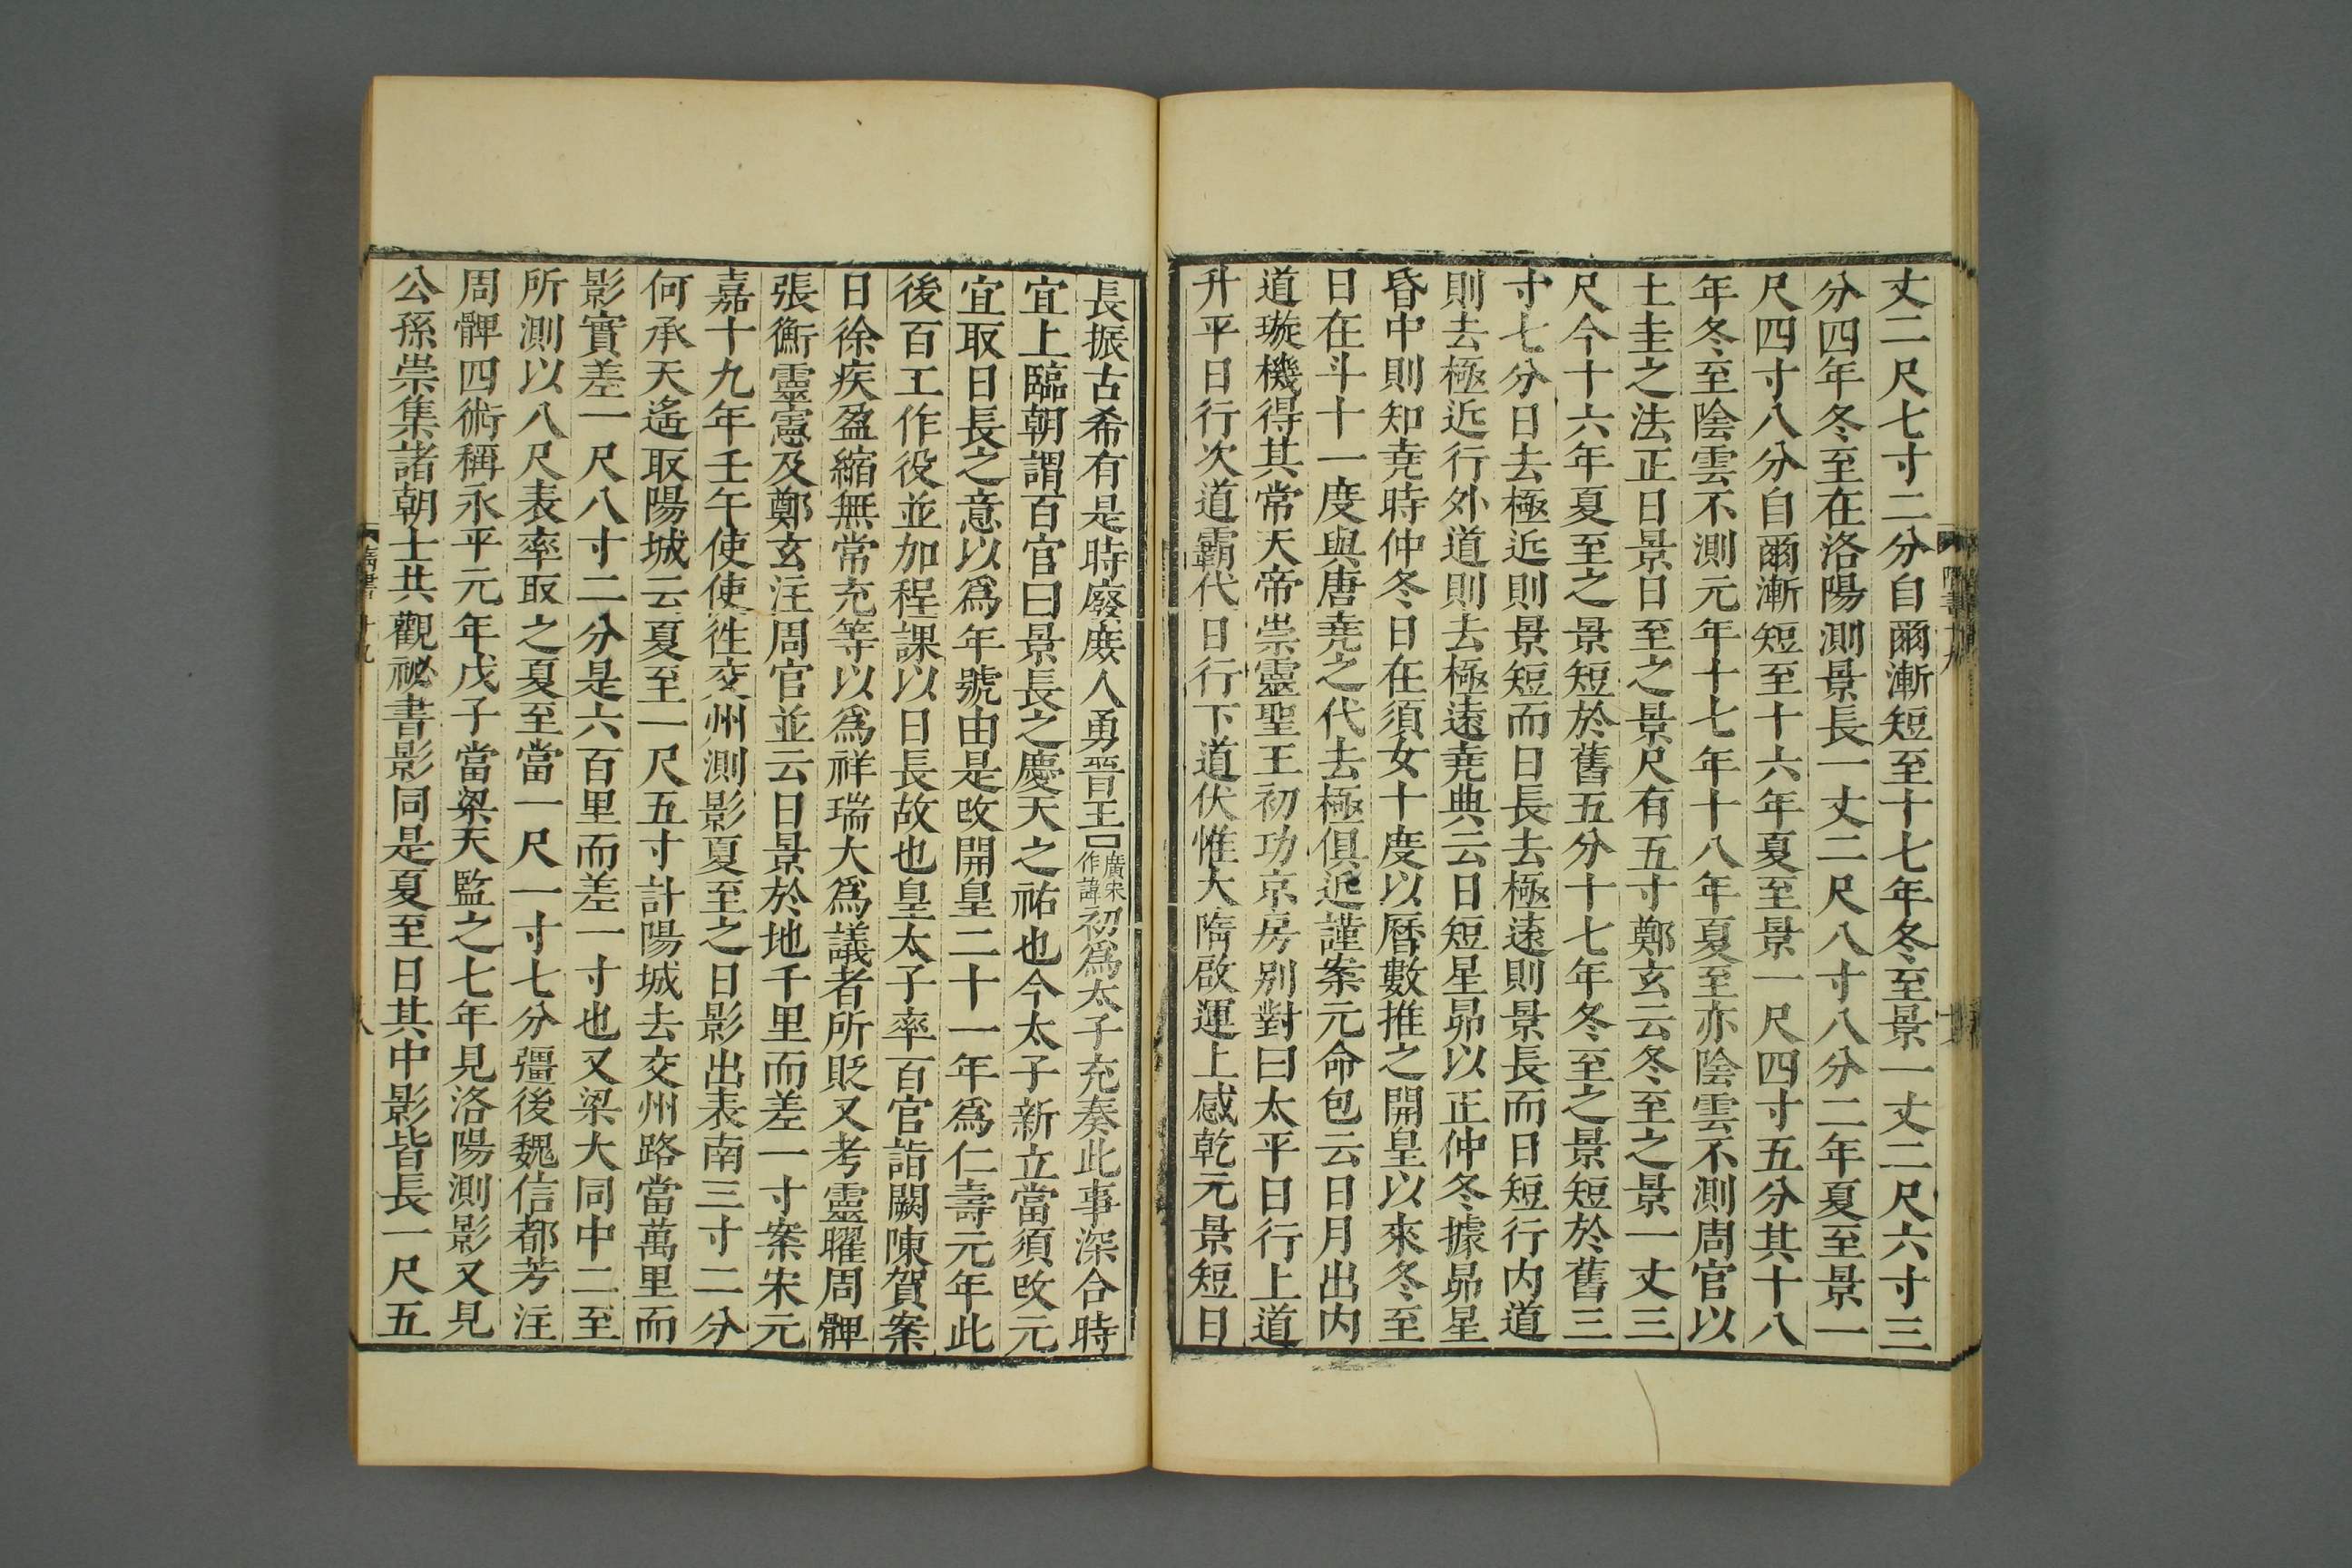 丈二尺七寸二分自爾漸短至十七年冬至景一丈二尺六寸三
分四年冬至在洛陽測景長一丈二尺八寸八分二年夏至景一
尺四寸八分自爾漸短至十六年夏至景一尺四寸五分其十八
年冬至陰雲不測元年十七年十八年夏至亦陰雲不測周官以
土圭之法正日景日至之景尺有五寸鄭玄云冬至之景一丈三
尺今十六年夏至之景短於舊五分十七年冬至之景短於舊三
寸七分日去極近則景短而日長去極遠則景長而日短行内道
則去極近行外道則去極遠堯典云日短星昴以正仲冬據昴星
昏中則知堯時仲冬日在須女十度以曆數推之開皇以來冬至
日在斗十一度與唐堯之代去極俱近謹案元命包云日月出内
道璇機得其常天帝崇靈聖王初功京房别對曰太平日行上道
升平日行次道霸代日行下道伏惟大隋啟運上感乾元景短日
長振古希有是時廢庶人勇晋王囗廣宋作諱初爲太子充奏此事深合時
宜上臨朝謂百官曰景長之慶天之祐也今太子新立當須改元
宜取日長之意以爲年號由是改開皇二十一年爲仁壽元年此
後百工作役並加程課以日長故也皇太子率百官詣闕陳賀案
日徐疾盈縮無常充等以爲祥瑞大爲議者所貶又考靈曜周髀
張衡靈憲及鄭玄注周官並云日景於地千里而差一寸案宋元
嘉十九年壬午使使徃交州測影夏至之日影出表南三寸二分
何承天遙取陽城云夏至一尺五寸計陽城去交州路當萬里而
影實差一尺八寸二分是六百里而差一寸也又梁大同中二至
所測以八尺表率取之夏至當一尺一寸七分彊後魏信都芳注
周髀四術稱永平元年戊子當梁天監之七年見洛陽測影又見
公孫崇集諸朝士共觀祕書影同是夏至日其中影皆長一尺五
隋書十九
八